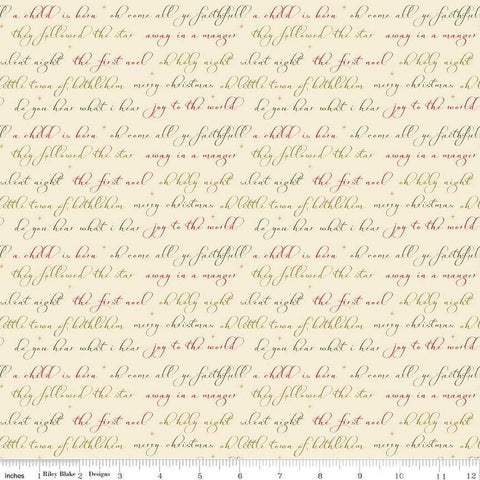 a child is born oh come all ye faithfull a child is born oh come all ye faithfull
they followed the star away in a manger they followed the star away in a manger
silent night the first noel oh holy night silent night the first noel oh holy night
oh little town of bethlehem merry christmas oh little town of bethlehem merry christmas oh
do you hear what i hear joy to the world do you hear what i hear joy to the world
a child is born oh come all ye faithfull a child is born oh come all ye faithfull
they followed the star away in a manger they followed the star away in a manger
silent night the first noel oh holy night silent night the first noel oh holy night
little town of bethlehem merry christmas oh little town of bethlehem merry christmas oh
do you hear what i hear joy to the world do you hear what i hear joy to the world
a child is born oh come all ye faithfull a child is born oh come all ye faithfull
they followed the star away in a manger they followed the star away in a manger
silent night the first noel oh holy night silent night the first noel oh holy night
little town of bethlehem merry christmas oh little town of bethlehem merry christmas oh
do you hear what i hear joy to the world do you hear what i hear joy to the world
a child is born oh come all ye faithfull a child is born oh come all ye faithfull
they followed the star away in a manger they followed the star away in a manger
silent night the first noel oh holy night silent night the first noel oh holy night
little town of bethlehem merry christmas oh little town of bethlehem merry christmas oh
inches 1 Riley Blake 2 Designs 3 4 5 6 7 8 9 10 11 12